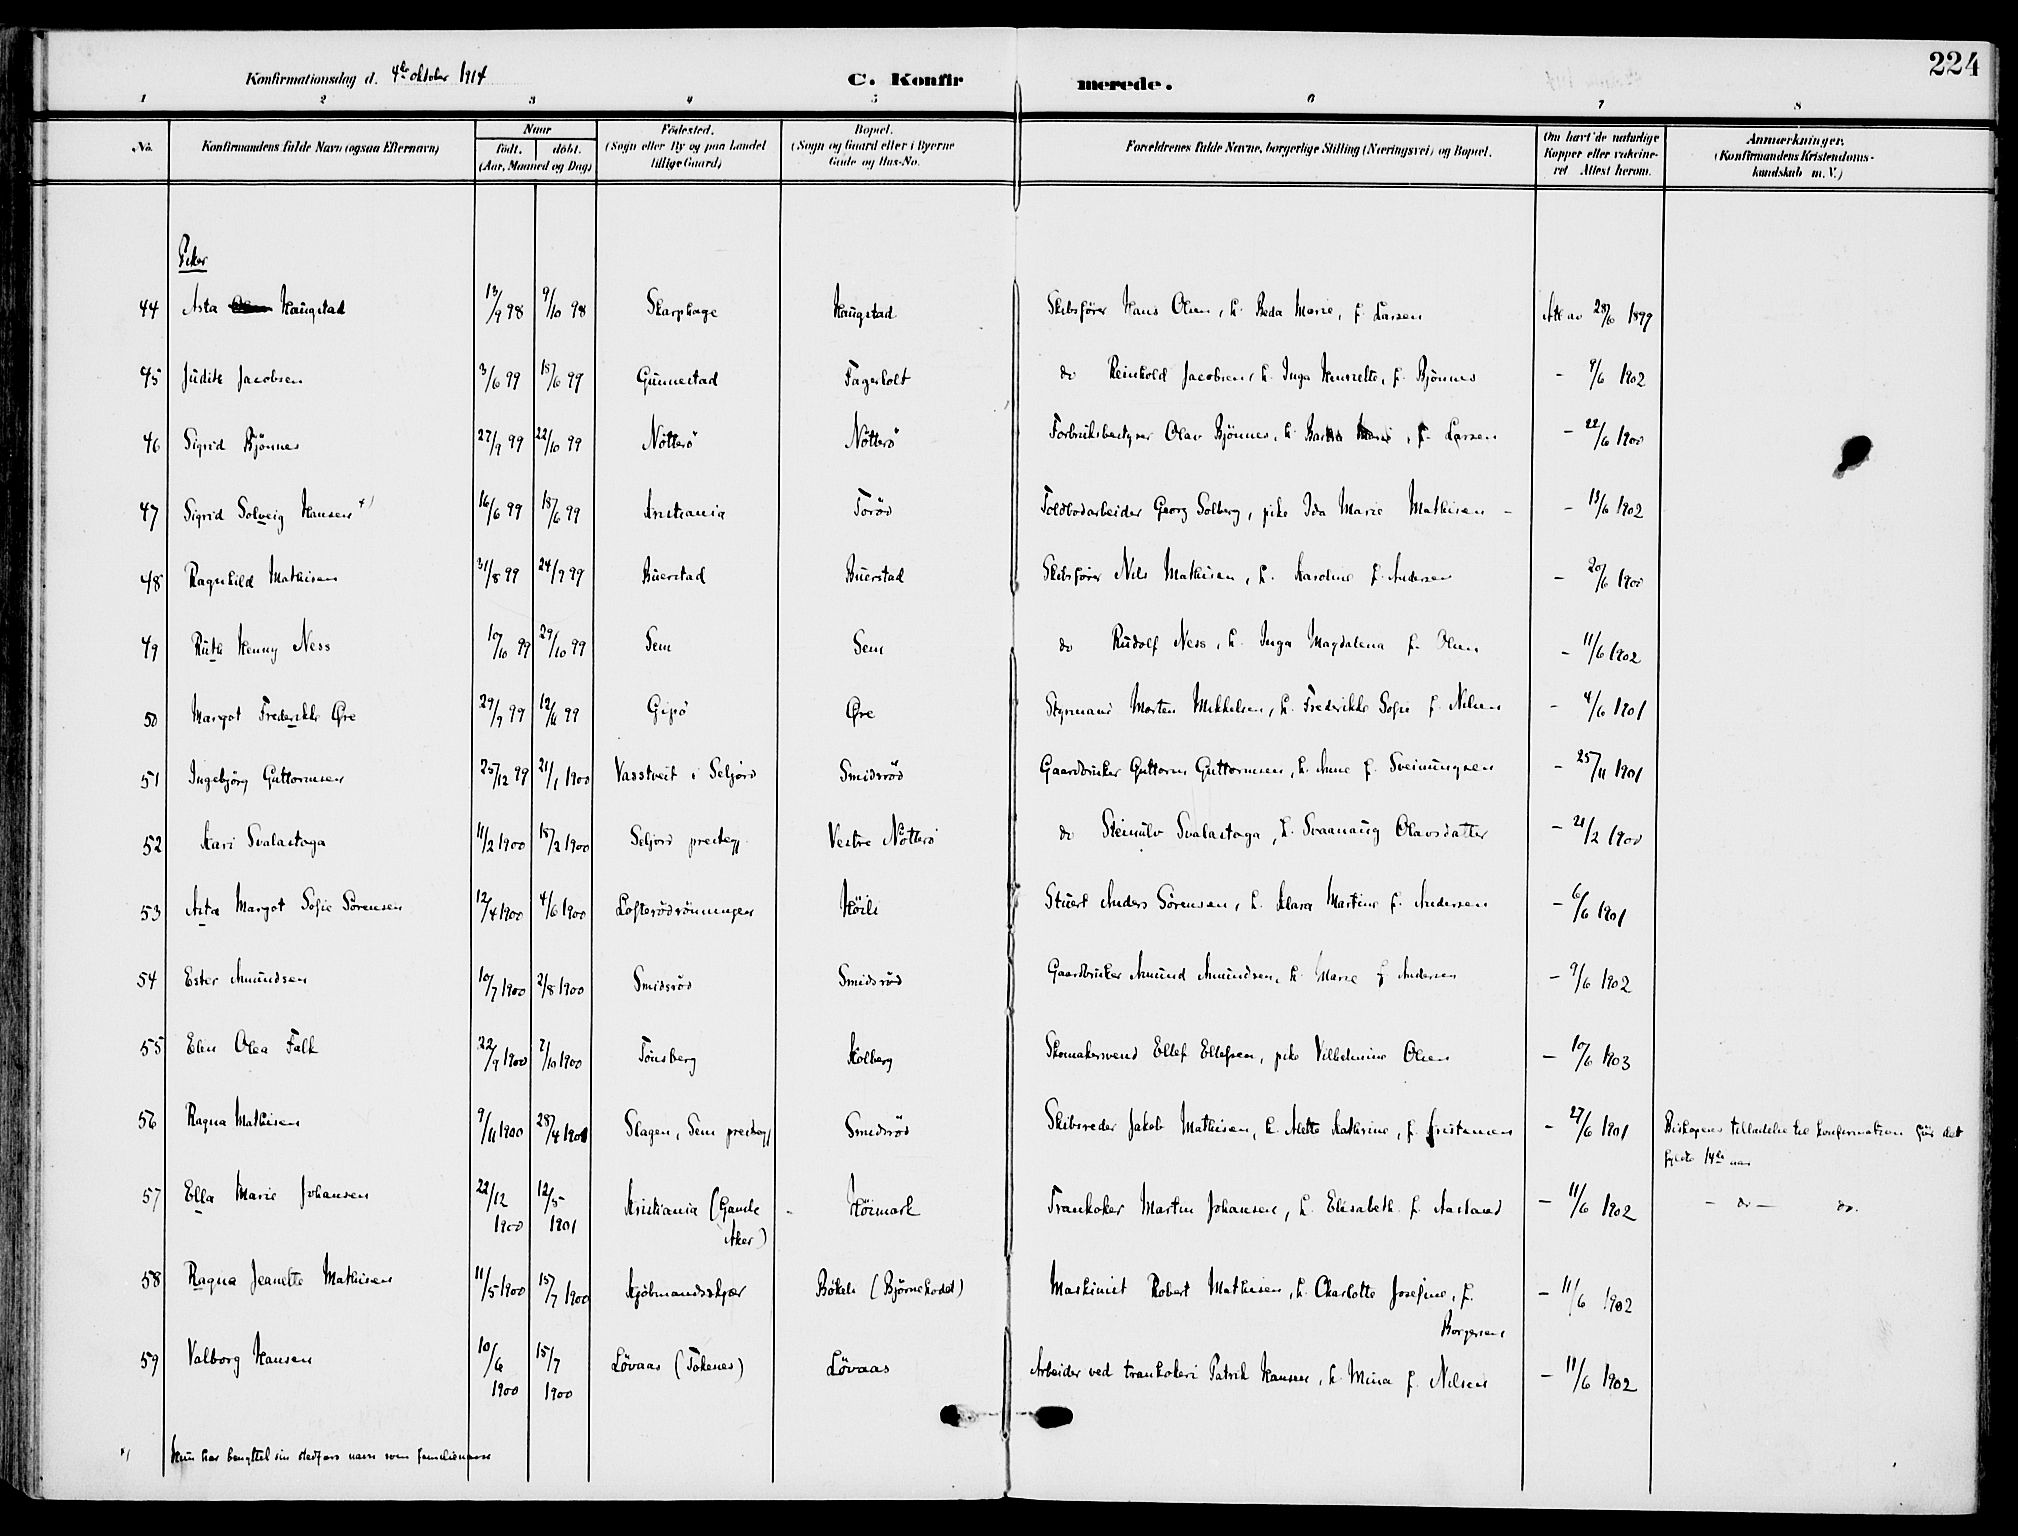 224
Konfirmationsdag d. 4de oktober 1914
C. Konfirmerede.
1 2 3 4 5 6 7 8
No. Konfirmandens fulde Navn (ogsaa Efternavn) Naar født. døbt. (Aar, Maaned og Dag) Fødested. (Sogn eller By og paa Landet tillige Gaard) Bopæl. (Sogn og Gaard eller i Byerne Gade og Hus-No. Forældrenes fulde Navne, borgerlige Stilling (Næringsvei) og Bopæl. Om havt de naturlige Kopper eller vakcineret Attest herom. Anmærkninger. (Konfirmandens Kristendomskundskab m. V.)
Piker
44 Asta Haugstad 13/9 98 9/10 98 Skarphage Haugstad Skibsfører Hans Olsen, h. Beda Marie, f. Larsen Att av 28/6 1899
45 Judith Jacobsen 3/6 99 18/6 99 Gunnestad Fagerholt do Reinhold Jacobsen, h. Inga Henriette, f. Bjønnes - 9/6 1902
46 Sigrid Bjønnes 27/9 99 22/10 99 Nøtterø Nøtterø Forbruksbestyrer Olav Bjønnes, h. Marie, f. Larsen - 22/6 1900
47 Sigrid Solveig Hansen x) 16/6 99 18/6 99 Kristiania Torød Toldbodarbeider Georg Solberg, pike Ida Marie Mathisen - - 13/6 1902
48 Ragnhild Mathisen 31/8 99 24/9 99 Buerstad Buerstad Skibsfører Nils Mathisen, h. Karoline f. Andersen - 20/6 1900
49 Ruth Henny Ness 10/10 99 29/10 99 Sem Sem do Rudolf Ness, h. Inga Magdalena f. Olsen - 11/6 1902
50 Margot Frederikke Øre 29/9 99 12/11 99 Gipø Øre Styrmand Morten Mikkelsen, h. Frederikke Sofie f. Nilsen - 4/6 1901
51 Ingebjørg Guttormsen 25/12 99 21/1 1900 Vasstveit i Seljord Smidsrød Gaardbruker Guttorm Guttormsen, h. Anne f. Sveinungsen - 25/11 1901
52 Kari Svalastoga 11/2 1900 18/2 1900 Seljord prestegj. Vestre Nøtterø do Steinulv Svalastoga, h. Svaanaug Olavsdatter - 21/2 1900
53 Asta Margot Sofie Sørensen 12/4 1900 4/6 1900 Lofterødrønningen Høili Stuert Anders Sørensen, h. Klara Martine f. Andersen - 6/6 1901
54 Ester Amundsen 10/7 1900 2/8 1900 Smidsrød Smidsrød Gaardbruker Amund Amundsen, h. Marie f Andersen - 9/6 1902
55 Elin Olea Falk 22/9 1900 7/10 1900 Tønsberg Kolberg Skomakersvend Ellef Ellefsen, pike Vilhelmine Olsen - 10/6 1903
56 Ragna Mathisen 9/11 1900 28/4 1901 Slagen, Sem prestegj Smidsrød Skibsreder Jakob Mathisen, h. Alette Kathrine, f. Kristensen - 27/6 1901 Biskopens tilladelse til konfirmation før det
fyldte 14de aar
57 Ella Marie Johansen 22/12 1900 12/5 1901 Kristiania (Gamle Aker) - Høimark Trankoker Martin Johansen, h. Elisabeth f. Aasland - 11/6 1902 - do - do.
58 Ragna Jeanette Mathisen 11/5 1900 15/7 1900 Kjøbmandsskjær Bøkeli (Bjørnehodet) Maskinist Robert Mathisen, h. Charlotte Josefine, f. Borgersen - 11/6 1902
59 Valborg Hansen 10/6 1900 15/7 1900 Løvaas (Tokenes) Løvaas Arbeider ved trankokeri Patrik Hansen, h. Mina f. Nilsen - 11/6 1902
x) Hun har benyttet sin stedfars navn som familienavn